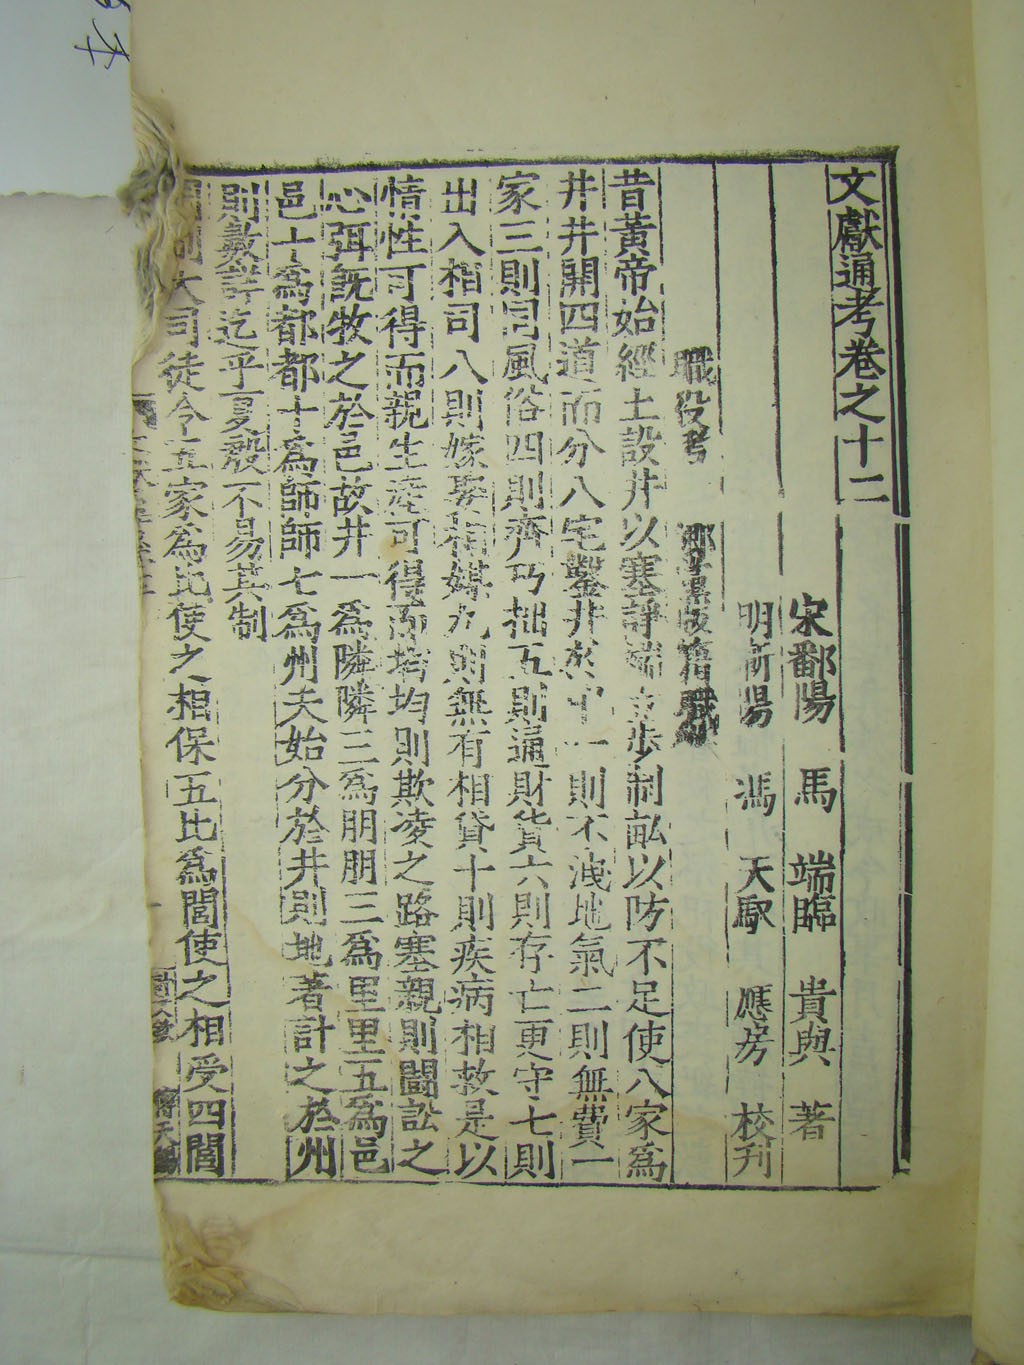 文獻通考卷之十二
宋鄱陽 馬 端臨 貴與 著
明蘄陽 馮 天馭 應房 校刊
職役考
昔黃帝始經土設井以塞諍端立步制畝以防不足使八家爲
井井開四道而分八宅鑿井於中一則不洩地氣二則無費一
家三則同風俗四則齊巧拙五則通財貨六則存亡更守七則
出入相司八則嫁娶相媒九則無有相貸十則疾病相救是以
情性可得而親生產可得而均均則欺凌之路塞親則鬪訟之
心弭旣牧之於邑故井一爲隣隣三爲朋朋三爲里里五爲邑
邑十爲都都十爲師師七爲州夫始分於井則地著計之於州
則數詳迄乎夏殷不易其制
周制大司徒令五家爲比使之相保五比爲閭使之相受四閭